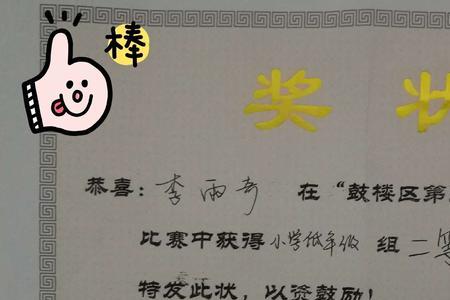 棒
奖状
恭喜：李雨奇 在“鼓楼区第
比赛中获得小学低年级 组 二等
特发此状，以资鼓励！